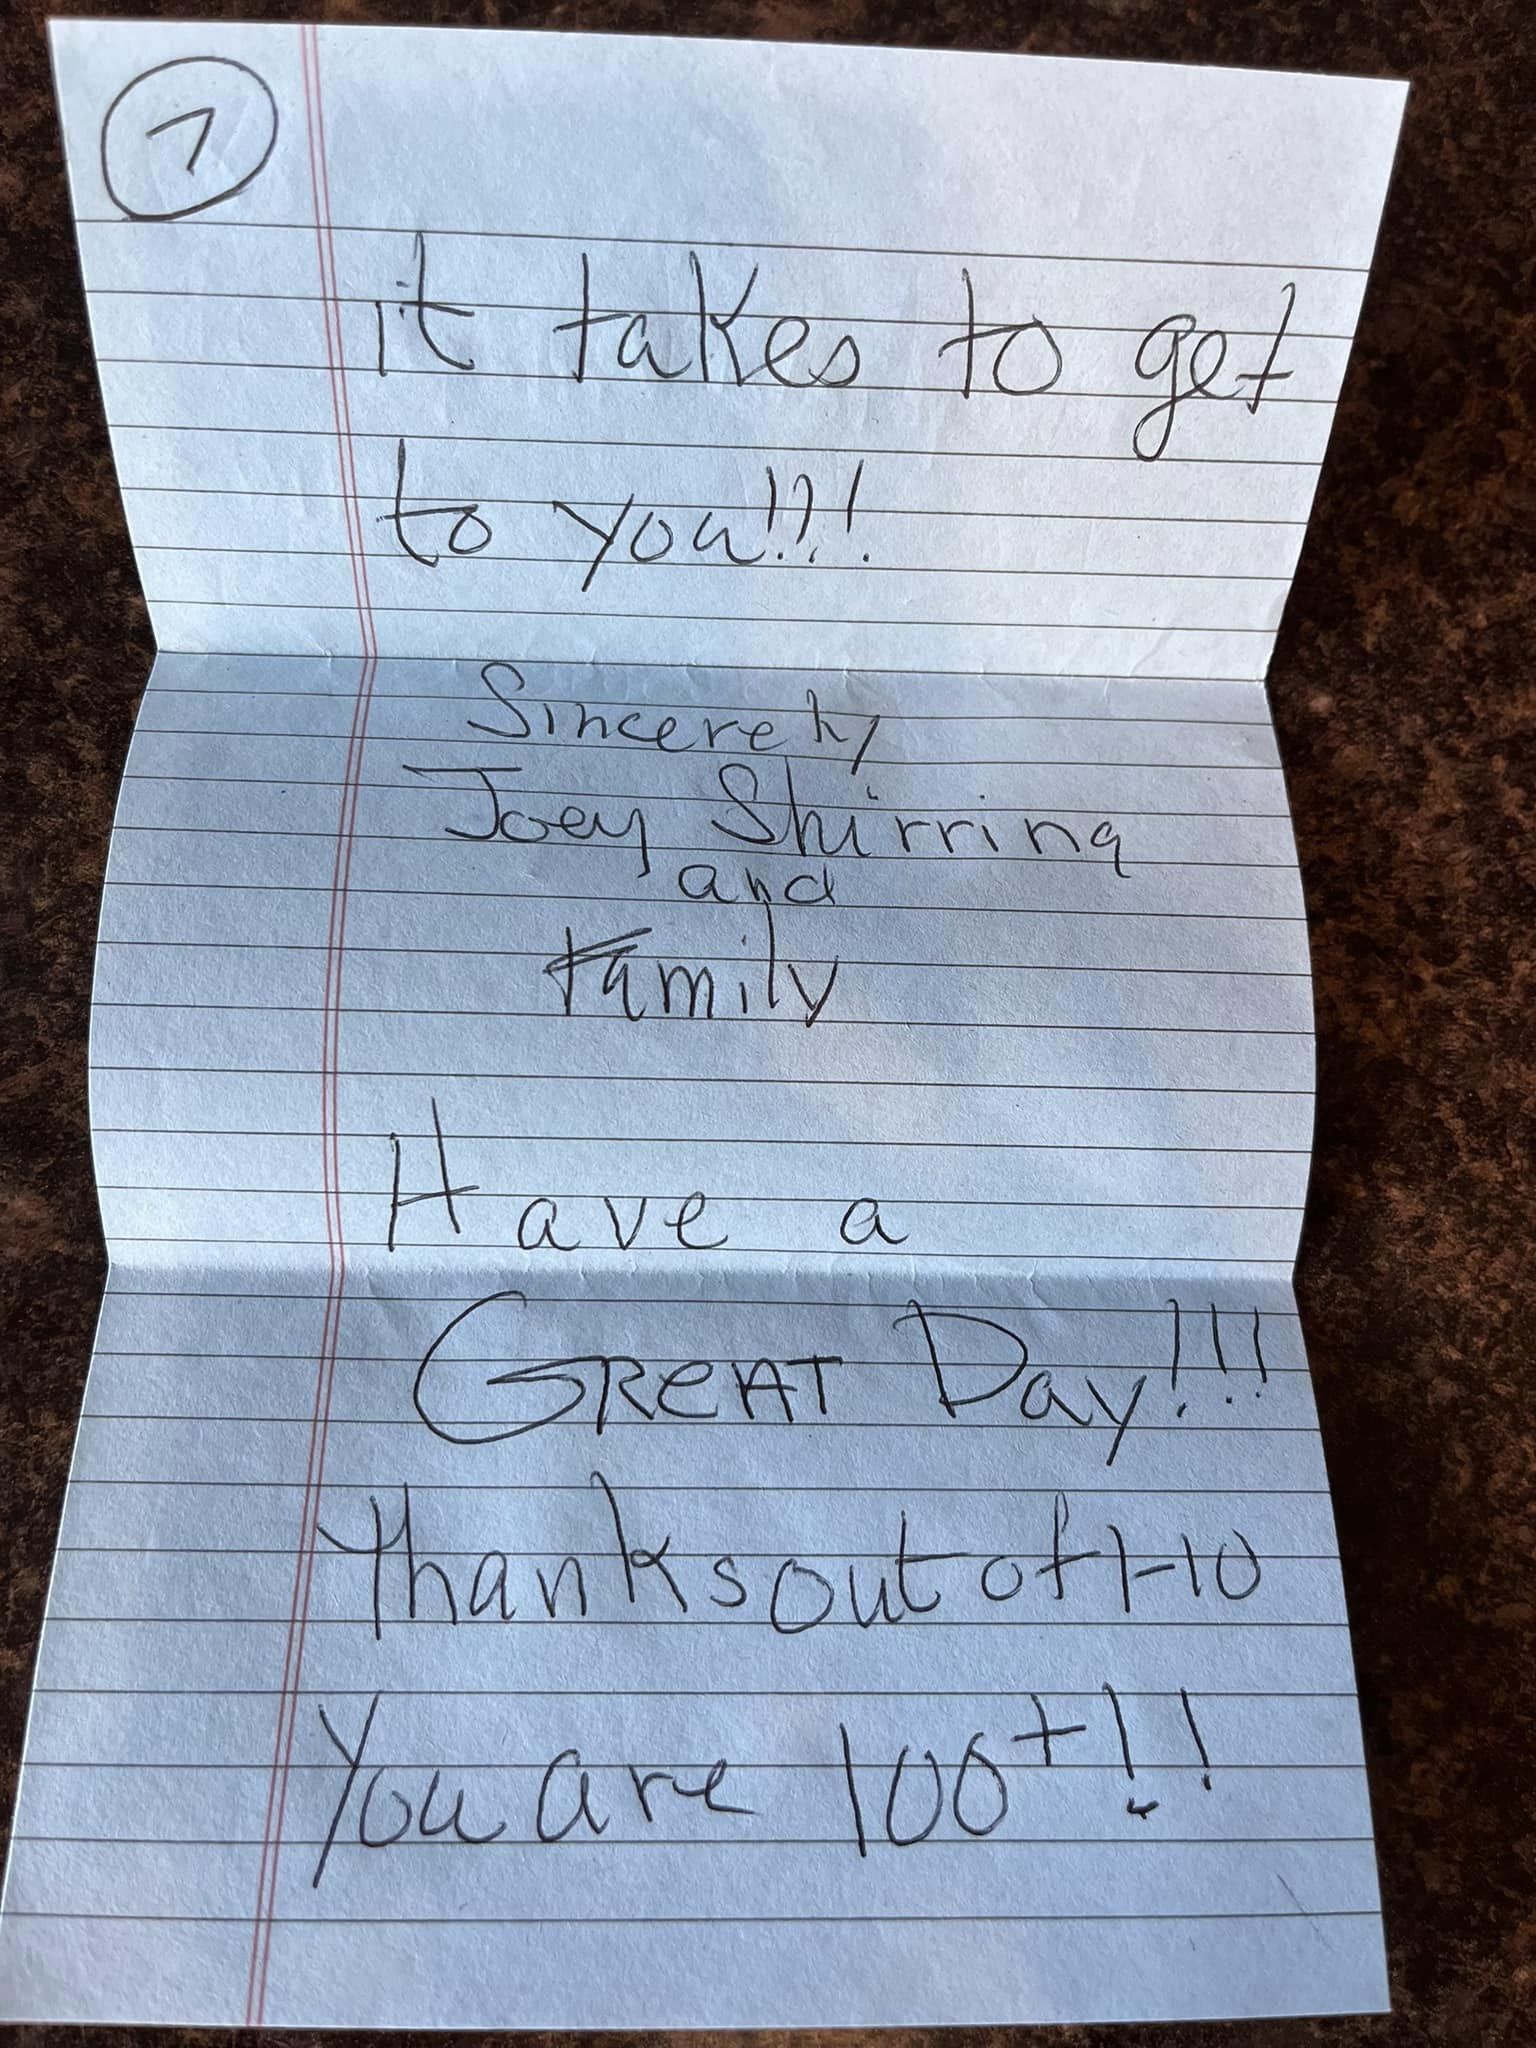 7
it takes to get
to you!!!
Sincerely
Joey Shirring
and
Family
Have a
GReAT Day!!!
Thanks out of 1-10
You are 100+!!